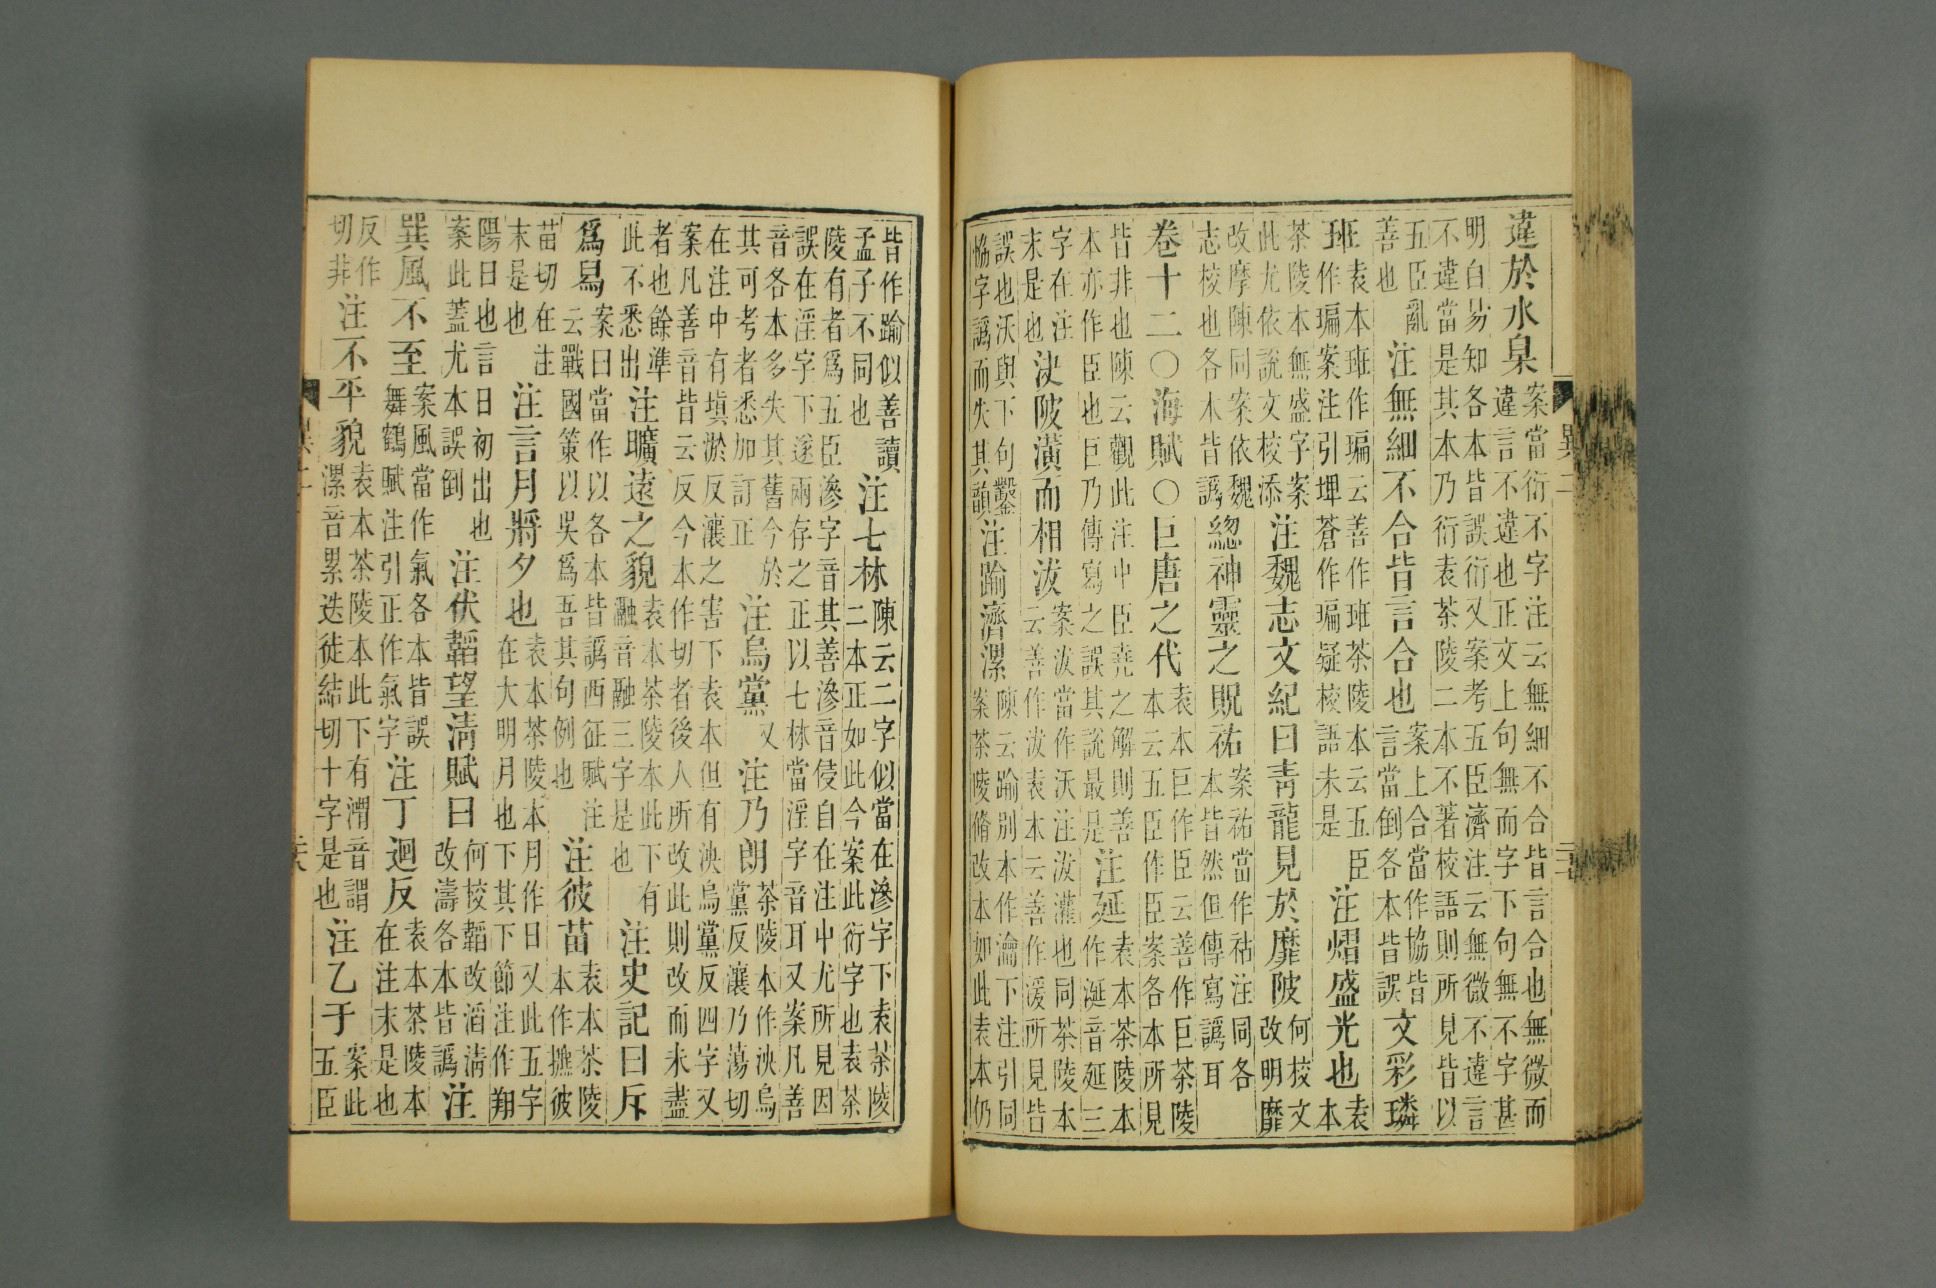 違於水臬案當衍不字注云無細不合皆言合也無微而違言不違也正文上句無而字下句無不字甚
明白易知各本皆誤衍又案考五臣濟注云無微不違言不違當是其本乃衍袁茶陵二本不著校語則所見皆以
五臣亂善也 注無細不合皆言合也案上合當作協皆言當倒各本皆誤 文彩璘
班袁本班作㻞云善作班茶陵本云五臣作㻞案注引埤蒼作㻞疑校語未是 注熠盛光也袁本
茶陵本無盛字案此尤依說文校添 注魏志文紀曰青龍見於靡陂何校文改明靡
改摩陳同案依魏志校也各本皆譌 總神靈之貺祐案祐當作祜注同各本皆然但傳寫譌耳
卷十二○海賦○巨唐之代袁本巨作臣云善作巨茶陵本云五臣作臣案各本所見
皆非也陳云觀此注中臣堯之解則善本亦作臣也巨乃傳寫之誤其說最是 注延袁本茶陵本作涎音延三
字在注末是也 決陂潢而相沷案沷當作沃注沷灌也同茶陵本云善作沷袁本云善作湲所見皆
誤也沃與下句鑿協字譌而失其韻 注踰濟漯陳云踰別本作瀹下注引同案茶陵脩改本如此袁本仍
異二
皆作踰似善讀孟子不同也 注七林陳云二字似當在滲字下袁茶陵二本正如此今案此衍字也袁茶
陵有者爲五臣滲字音其善滲音侵自在注中尤所見因誤在淫字下遂兩存之正以七林當淫字音耳又案凡善
音各本多失其舊今於其可考者悉加訂正 注烏黨又 注乃朗茶陵本作泱烏黨反瀼乃蕩切
在注中有塡淤反瀼之害下袁本但有泱烏黨反四字又案凡善音皆云反今本作切者後人所改此則改而未盡
者也餘準此不悉出 注曠遠之貌袁本茶陵本此下有融音融三字是也 注史記曰斥
爲舄案曰當作以各本皆譌西征賦注云戰國策以吳爲吾其句例也 注彼苗袁本茶陵本作㨹彼
苗切在注末是也 注言月將夕也袁本茶陵本月作日又此五字在大明月也下其下節注作翔
陽日也言日初出也案此蓋尤本誤倒 注伏韜望清賦曰何校韜改滔清改濤各本皆譌 注
巽風不至案風當作氣各本皆誤舞鶴賦注引正作氣字 注丁迴反袁本茶陵本在注末是也
反作切非 注不平貌袁本茶陵本此下有渭音謂漯音累迭徒結切十字是也 注乙于案此五臣